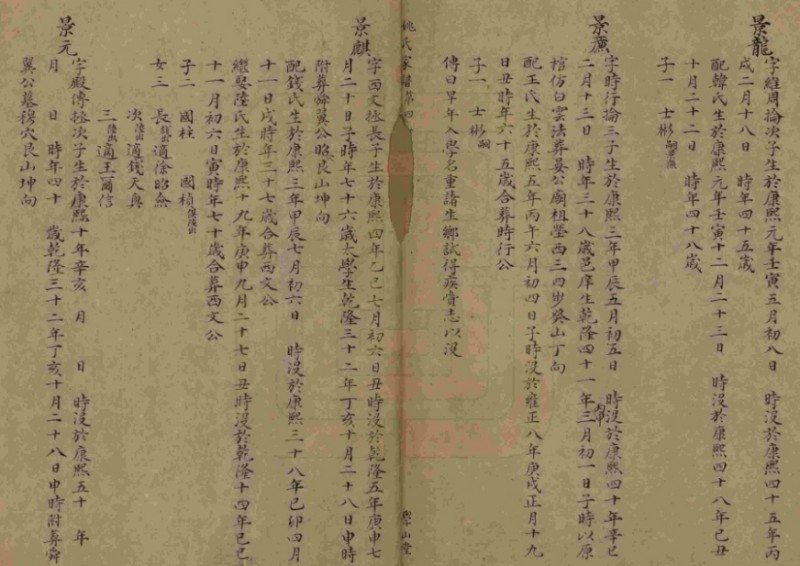 景龍 字維周掄次子生於康熙元年壬寅五月初八日 時沒於康熙四十五年丙
戌二月十八日 時年四十五歲
配韓氏生於康熙元年壬寅十二月二十三日 時沒於康熙四十八年己丑
十月二十二日 時年四十八歲
子一 士彬
景廣 字時行掄三子生於康熙三年甲辰五月初五日 時沒於康熙四十年辛巳
二月十三日 時年三十八歲邑庠生乾隆四十一年三月初一日子時以原
棺仿白雲法葬晏公廟祖塋西三四步癸山丁向
配王氏生於康熙五年丙午六月初四日子時沒於雍正八年庚戌正月十九
日丑時年六十五歲合葬時行公
子一 士彬嗣
傳曰早年入學名重諸生鄉試得疾賫志以沒
姚氏家譜第四
學山堂
景麒 字西文拯長子生於康熙四年乙巳七月初六日丑時沒於乾隆五年庚申七
月二十日子時年七十六歲太學生乾隆三十二年丁亥十月二十八日申時
附葬舜翼公昭艮山坤向
配錢氏生於康熙三年甲辰七月初六日 時沒於康熙三十八年己卯四月
十一日戌時年三十七歲合葬西文公
繼娶陸氏生於康熙十九年庚申九月二十七日丑時沒於乾隆十四年己巳
十一月初六日寅時年七十歲合葬西文公
子二 國柱 國楨俱陸出
女三 長錢出適徐昭
次陸出適錢天與
三陸出適王爾信
景元 字殿傳拯次子生於康熙十年辛亥 月 日 時沒於康熙五十 年
月 日 時年四十 歲乾隆三十二年丁亥十月二十八日申時附葬舜
翼公墓穆穴艮山坤向